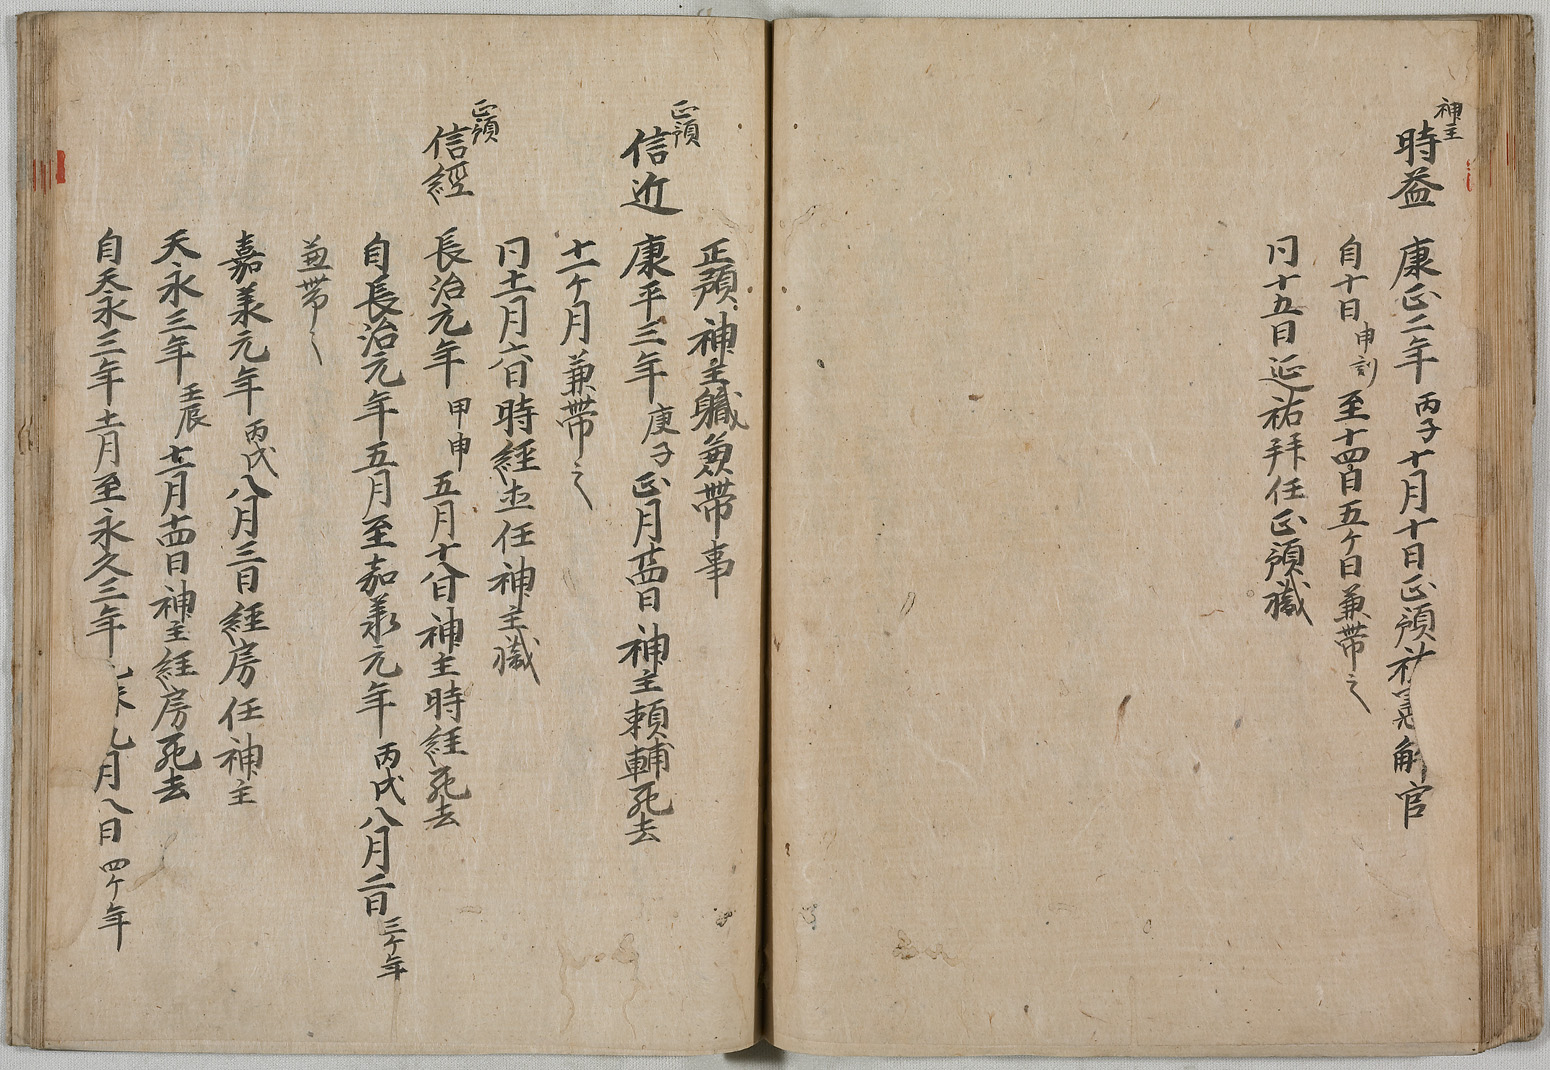 神主
時益 康正二年丙子十月十日正預祐 解官
自十日申剋至十四日五ケ日兼帯之
同十五日延祐拝任正預職
正預神主職兼帯事
正預
信近 康平三年庚子正月廿四日神主頼輔死去
十一ケ月兼帯之
同十一月六日時経任神主職
正預
信経 長治元年甲申五月十八日神主時経死去
自長治元年五月至嘉承元年丙戌八月二日三ケ年
兼帯之
嘉承元年丙戌八月三日経房任神主
天永三年壬辰十一月十四日神主経房死去
自天永三年十一月至永久三年 九月八日四ケ年